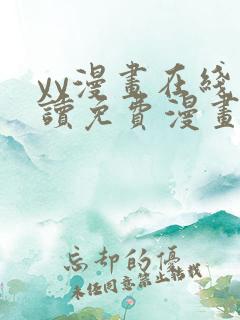 yy漫畫在綫
讀免費漫畫
忘却的優
未經同意禁止轉載